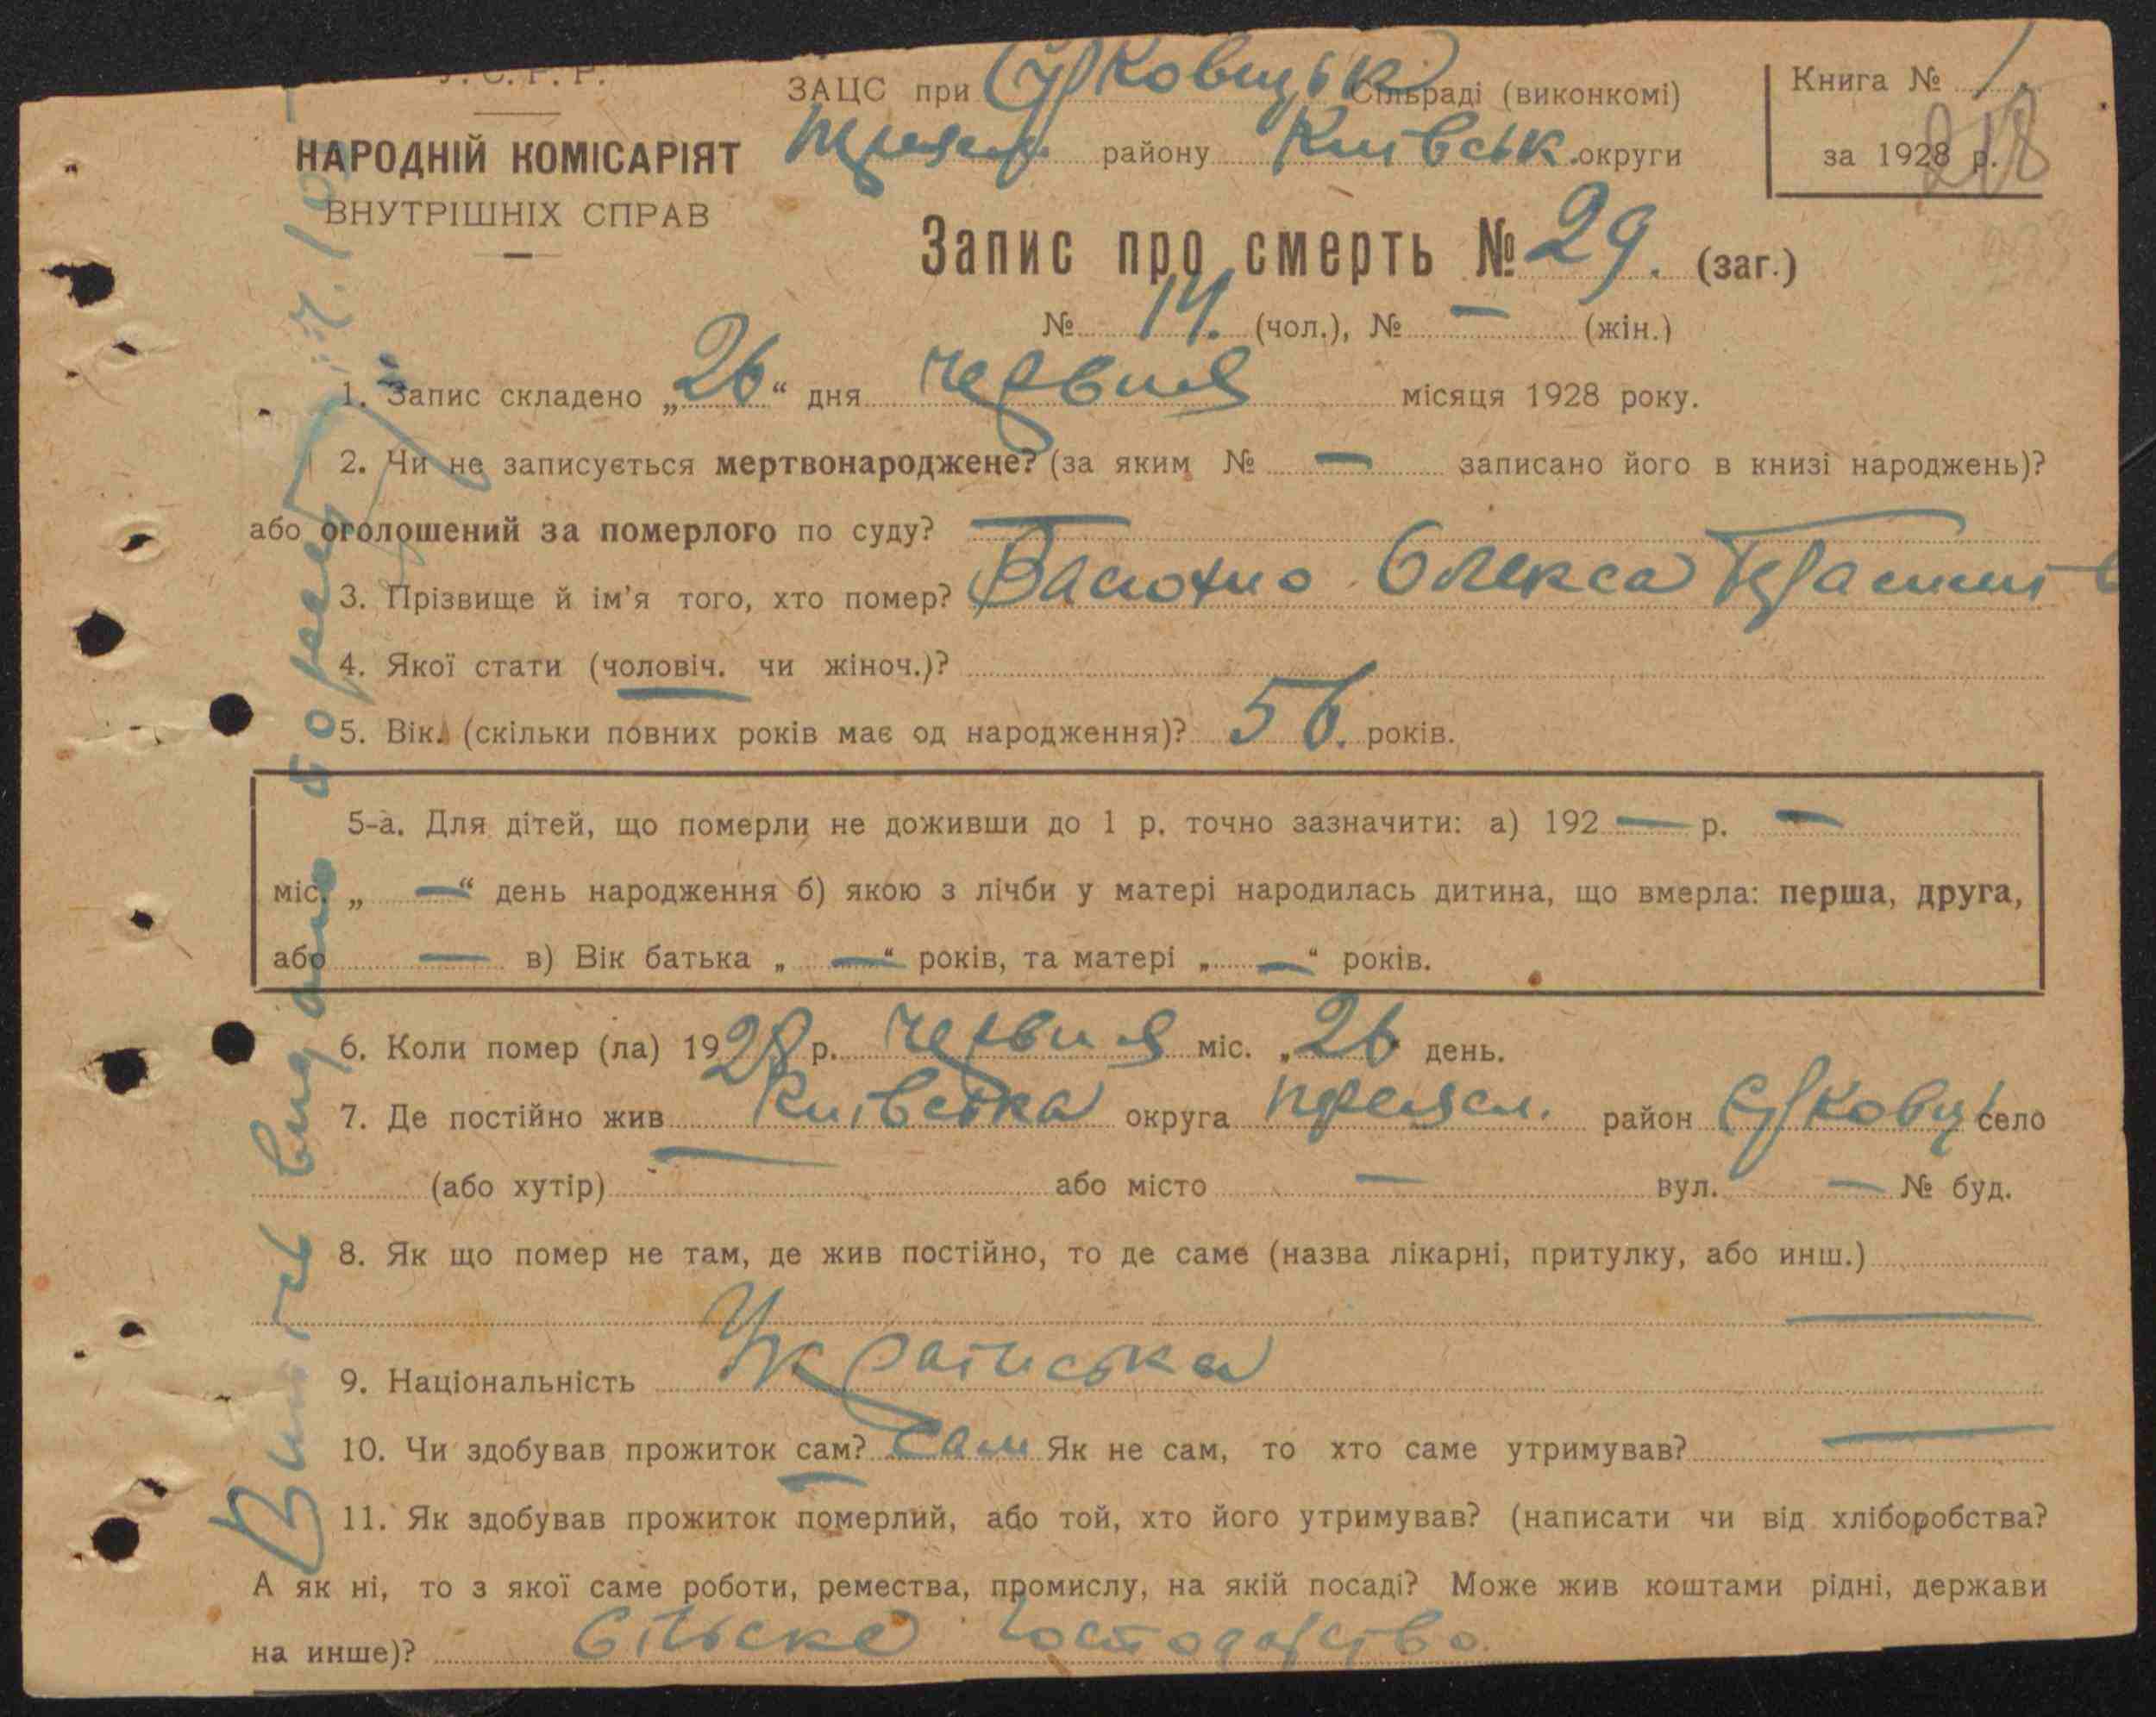 У. С. Р. Р.
НАРОДНІЙ КОМІСАРІЯТ
ВНУТРІШНІХ СПРАВ
ЗАЦС при Сільраді (виконкомі)
району Київськ. округи
Книга № 1.
за 1928 р.
218
Запис про смерть № 29. (заг.)
№ 14. (чол.), № — (жін.)
1. Запис складено „26“ дня червня місяця 1928 року.
2. Чи не записується мертвонароджене? (за яким № — записано його в книзі народжень)?
або оголошений за померлого по суду? —
3. Прізвище й ім’я того, хто помер? Олекса
4. Якої стати (чоловіч. чи жіноч.)?
5. Вік. (скільки повних років має од народження)? 56. років.
5-а. Для дітей, що померли не доживши до 1 р. точно зазначити: а) 192 — р. —
міс. „ — “ день народження б) якою з лічби у матері народилась дитина, що вмерла: перша, друга,
або — в) Вік батька „ — “ років, та матері „ — “ років.
6. Коли помер (ла) 1928 р. червня міс. „26“ день.
7. Де постійно жив Київська округа переясл. район село
(або хутір) або місто — вул. — № буд.
8. Як що помер не там, де жив постійно, то де саме (назва лікарні, притулку, або инш.)
—
9. Національність Українська
10. Чи здобував прожиток сам? сам Як не сам, то хто саме утримував? —
11. Як здобував прожиток померлий, або той, хто його утримував? (написати чи від хліборобства?
А як ні, то з якої саме роботи, ремества, промислу, на якій посаді? Може жив коштами рідні, держави
на инше)? Сільське господарство.